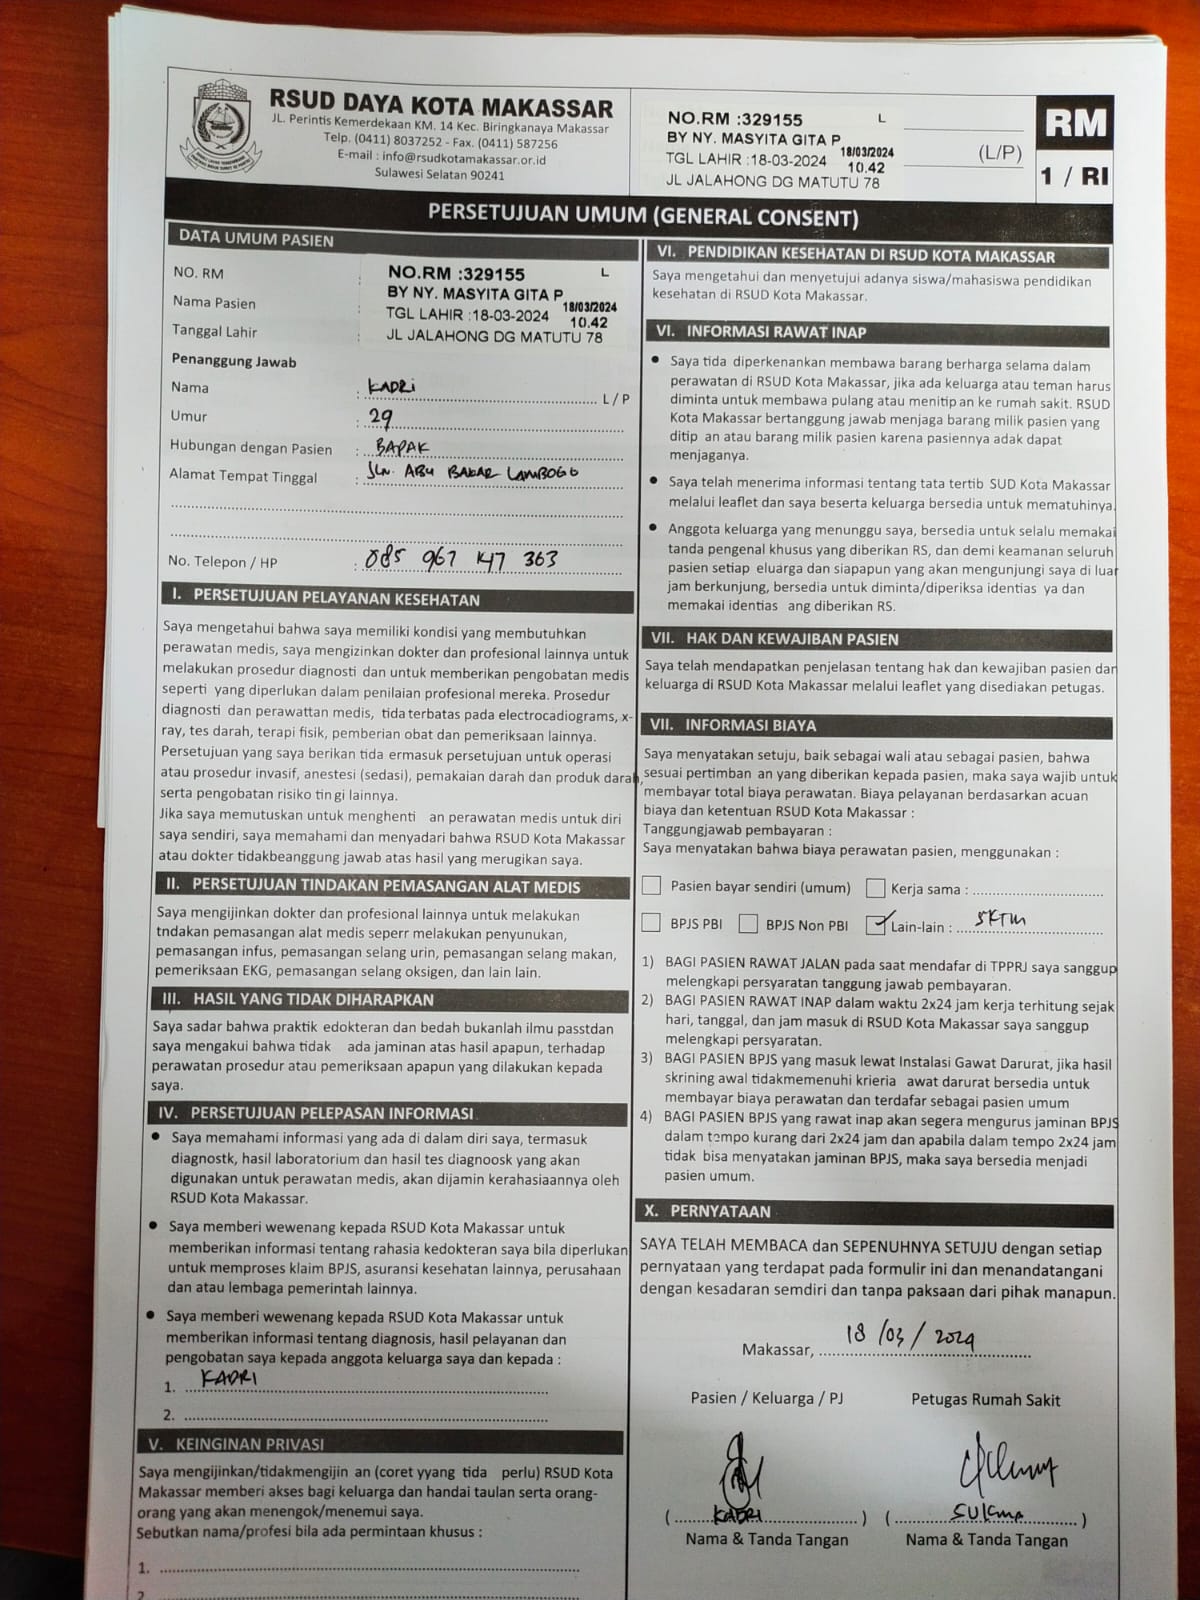 RSUD DAYA KOTA MAKASSAR
JL. Perintis Kemerdekaan KM. 14 Kec. Biringkanaya Makassar
Telp. (0411) 8037252 - Fax. (0411) 587256
E-mail : info@rsudkotamakassar.or.id
Sulawesi Selatan 90241
NO.RM :329155 L
BY NY. MASYITA GITA P
TGL LAHIR :18-03-2024 18/03/2024 10.42
JL JALAHONG DG MATUTU 78
(L/P)
RM
1 / RI
PERSETUJUAN UMUM (GENERAL CONSENT)
DATA UMUM PASIEN
NO. RM :
Nama Pasien :
Tanggal Lahir :
NO.RM :329155 L
BY NY. MASYITA GITA P
TGL LAHIR :18-03-2024 18/03/2024 10.42
JL JALAHONG DG MATUTU 78
Penanggung Jawab
Nama : KADRI L / P
Umur : 29
Hubungan dengan Pasien : BAPAK
Alamat Tempat Tinggal : JLN. ABU BAKAR LAMBOGO
No. Telepon / HP : 085 967 147 363
I. PERSETUJUAN PELAYANAN KESEHATAN
Saya mengetahui bahwa saya memiliki kondisi yang membutuhkan
perawatan medis, saya mengizinkan dokter dan profesional lainnya untuk
melakukan prosedur diagnosti dan untuk memberikan pengobatan medis
seperti yang diperlukan dalam penilaian profesional mereka. Prosedur
diagnosti dan perawattan medis, tida terbatas pada electrocadiograms, x-
ray, tes darah, terapi fisik, pemberian obat dan pemeriksaan lainnya.
Persetujuan yang saya berikan tida ermasuk persetujuan untuk operasi
atau prosedur invasif, anestesi (sedasi), pemakaian darah dan produk darah,
serta pengobatan risiko tin gi lainnya.
Jika saya memutuskan untuk menghenti an perawatan medis untuk diri
saya sendiri, saya memahami dan menyadari bahwa RSUD Kota Makassar
atau dokter tidakbeanggung jawab atas hasil yang merugikan saya.
II. PERSETUJUAN TINDAKAN PEMASANGAN ALAT MEDIS
Saya mengijinkan dokter dan profesional lainnya untuk melakukan
tndakan pemasangan alat medis seperr melakukan penyunukan,
pemasangan infus, pemasangan selang urin, pemasangan selang makan,
pemeriksaan EKG, pemasangan selang oksigen, dan lain lain.
III. HASIL YANG TIDAK DIHARAPKAN
Saya sadar bahwa praktik edokteran dan bedah bukanlah ilmu passtdan
saya mengakui bahwa tidak ada jaminan atas hasil apapun, terhadap
perawatan prosedur atau pemeriksaan apapun yang dilakukan kepada
saya.
IV. PERSETUJUAN PELEPASAN INFORMASI
• Saya memahami informasi yang ada di dalam diri saya, termasuk
diagnostk, hasil laboratorium dan hasil tes diagnoosk yang akan
digunakan untuk perawatan medis, akan dijamin kerahasiaannya oleh
RSUD Kota Makassar.
• Saya memberi wewenang kepada RSUD Kota Makassar untuk
memberikan informasi tentang rahasia kedokteran saya bila diperlukan
untuk memproses klaim BPJS, asuransi kesehatan lainnya, perusahaan
dan atau lembaga pemerintah lainnya.
• Saya memberi wewenang kepada RSUD Kota Makassar untuk
memberikan informasi tentang diagnosis, hasil pelayanan dan
pengobatan saya kepada anggota keluarga saya dan kepada :
1. KADRI
2.
V. KEINGINAN PRIVASI
Saya mengijinkan/tidakmengijin an (coret yyang tida perlu) RSUD Kota
Makassar memberi akses bagi keluarga dan handai taulan serta orang-
orang yang akan menengok/menemui saya.
Sebutkan nama/profesi bila ada permintaan khusus :
1.
2
VI. PENDIDIKAN KESEHATAN DI RSUD KOTA MAKASSAR
Saya mengetahui dan menyetujui adanya siswa/mahasiswa pendidikan
kesehatan di RSUD Kota Makassar.
VI. INFORMASI RAWAT INAP
• Saya tida diperkenankan membawa barang berharga selama dalam
perawatan di RSUD Kota Makassar, jika ada keluarga atau teman harus
diminta untuk membawa pulang atau menitip an ke rumah sakit. RSUD
Kota Makassar bertanggung jawab menjaga barang milik pasien yang
ditip an atau barang milik pasien karena pasiennya adak dapat
menjaganya.
• Saya telah menerima informasi tentang tata tertib SUD Kota Makassar
melalui leaflet dan saya beserta keluarga bersedia untuk mematuhinya.
• Anggota keluarga yang menunggu saya, bersedia untuk selalu memakai
tanda pengenal khusus yang diberikan RS, dan demi keamanan seluruh
pasien setiap eluarga dan siapapun yang akan mengunjungi saya di luar
jam berkunjung, bersedia untuk diminta/diperiksa identias ya dan
memakai identias ang diberikan RS.
VII. HAK DAN KEWAJIBAN PASIEN
Saya telah mendapatkan penjelasan tentang hak dan kewajiban pasien dan
keluarga di RSUD Kota Makassar melalui leaflet yang disediakan petugas.
VII. INFORMASI BIAYA
Saya menyatakan setuju, baik sebagai wali atau sebagai pasien, bahwa
sesuai pertimban an yang diberikan kepada pasien, maka saya wajib untuk
membayar total biaya perawatan. Biaya pelayanan berdasarkan acuan
biaya dan ketentuan RSUD Kota Makassar :
Tanggungjawab pembayaran :
Saya menyatakan bahwa biaya perawatan pasien, menggunakan :
Pasien bayar sendiri (umum) Kerja sama :
BPJS PBI BPJS Non PBI Lain-lain : SKTM
1) BAGI PASIEN RAWAT JALAN pada saat mendafar di TPPRJ saya sanggup
melengkapi persyaratan tanggung jawab pembayaran.
2) BAGI PASIEN RAWAT INAP dalam waktu 2x24 jam kerja terhitung sejak
hari, tanggal, dan jam masuk di RSUD Kota Makassar saya sanggup
melengkapi persyaratan.
3) BAGI PASIEN BPJS yang masuk lewat Instalasi Gawat Darurat, jika hasil
skrining awal tidakmemenuhi krieria awat darurat bersedia untuk
membayar biaya perawatan dan terdafar sebagai pasien umum
4) BAGI PASIEN BPJS yang rawat inap akan segera mengurus jaminan BPJS
dalam tempo kurang dari 2x24 jam dan apabila dalam tempo 2x24 jam
tidak bisa menyatakan jaminan BPJS, maka saya bersedia menjadi
pasien umum.
X. PERNYATAAN
SAYA TELAH MEMBACA dan SEPENUHNYA SETUJU dengan setiap
pernyataan yang terdapat pada formulir ini dan menandatangani
dengan kesadaran semdiri dan tanpa paksaan dari pihak manapun.
Makassar, 18 / 03 / 2024
Pasien / Keluarga / PJ Petugas Rumah Sakit
( KADRI ) ( SUKMA )
Nama & Tanda Tangan Nama & Tanda Tangan